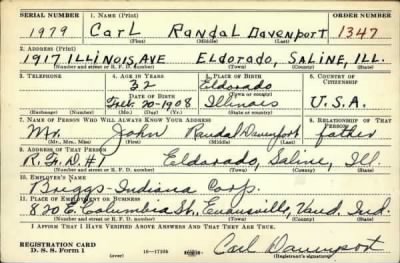 SERIAL NUMBER 1. NAME (Print) ORDER NUMBER
1979 Carl Randal Davenport 1347
(First) (Middle) (Last)
2. ADDRESS (Print)
1917 ILLINOIS AVE Eldorado, SALINE, ILL.
(Number and street or R. F. D. number) (Town) (County) (State)
3. TELEPHONE 4. AGE IN YEARS 5. PLACE OF BIRTH 6. COUNTRY OF CITIZENSHIP
32 Eldorado
DATE OF BIRTH (Town or county)
Feb. 20-1908 Illinois U.S.A.
(Exchange) (Number) (Mo.) (Day) (Yr.) (State or country)
7. NAME OF PERSON WHO WILL ALWAYS KNOW YOUR ADDRESS 8. RELATIONSHIP OF THAT PERSON
Mr. John Randal Davenport father
(Mr., Mrs., Miss) (First) (Middle) (Last)
9. ADDRESS OF THAT PERSON
R.F.D.#1 Eldorado, Saline, Ill.
(Number and street or R. F. D. number) (Town) (County) (State)
10. EMPLOYER'S NAME
Briggs-Indiana Corp.
11. PLACE OF EMPLOYMENT OR BUSINESS
820 E. Columbia St., Evansville, Vand, Ind.
(Number and street or R. F. D. number) (Town) (County) (State)
I AFFIRM THAT I HAVE VERIFIED ABOVE ANSWERS AND THAT THEY ARE TRUE.
REGISTRATION CARD
D. S. S. Form 1 (over) 16-17105 Carl Davenport
(Registrant's signature)